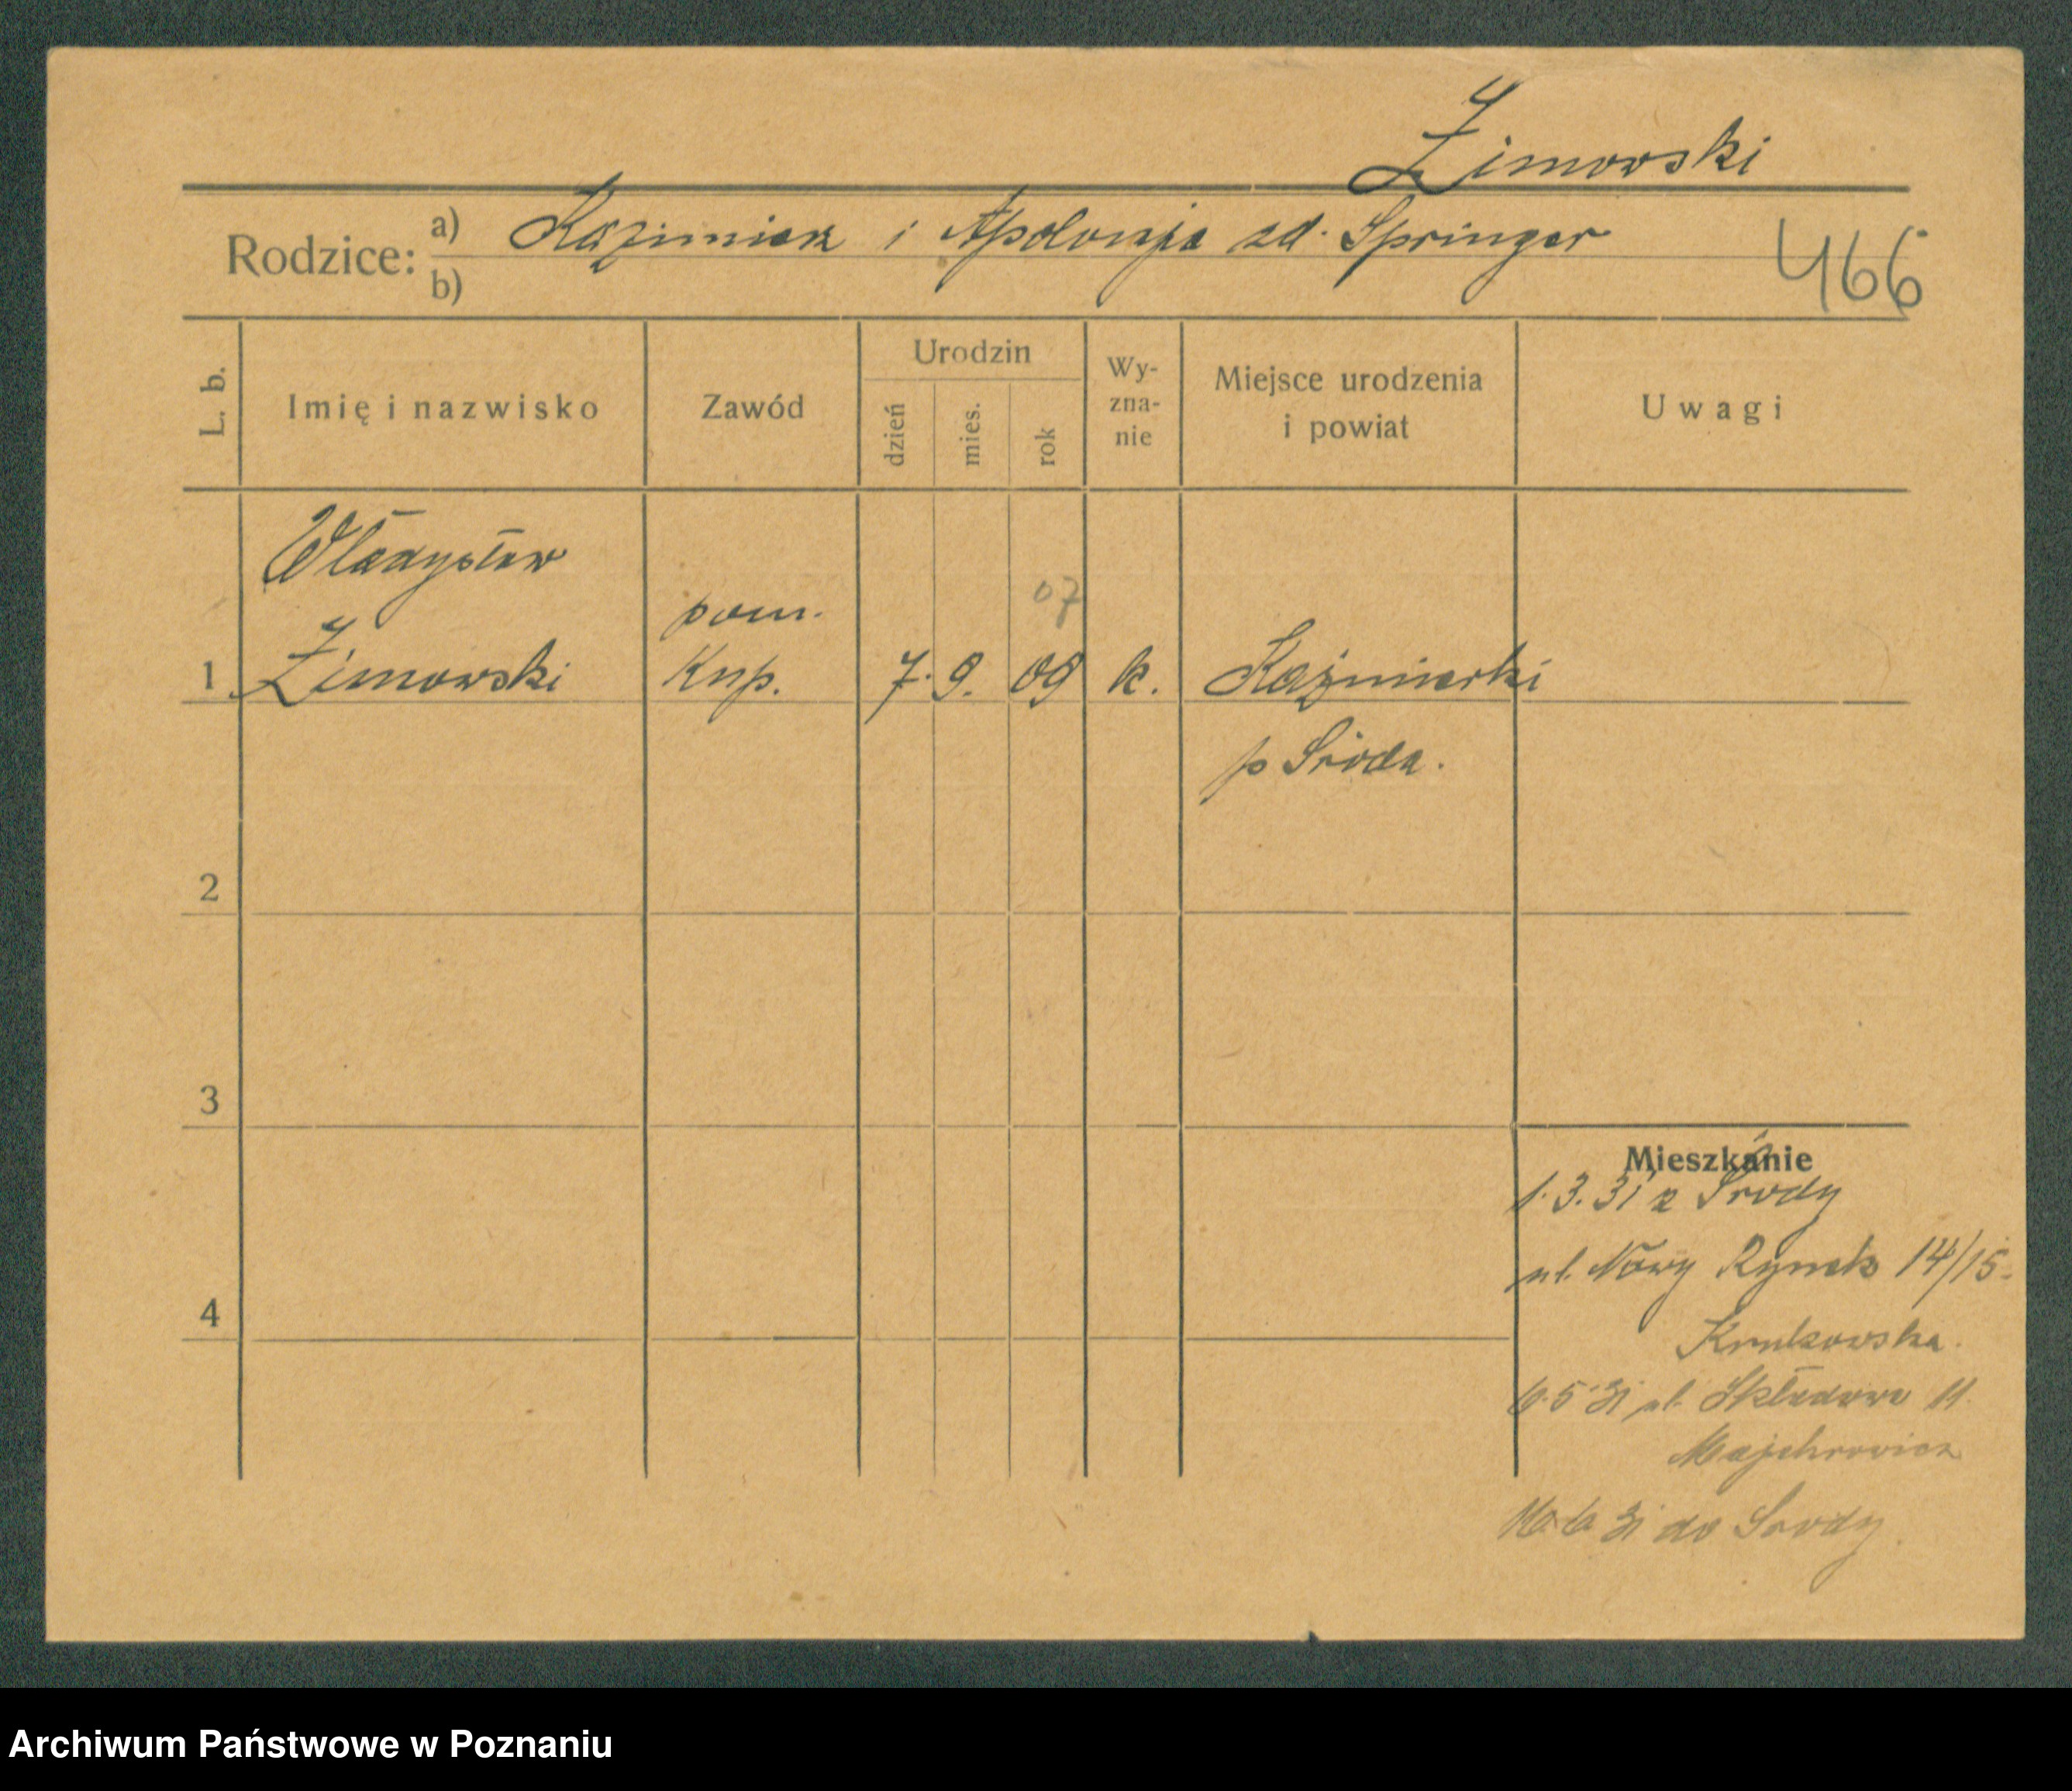 Zimowski
Rodzice: a) Kazimierz i Apolonja zd. Springer
b)
466
L. b.
Imię i nazwisko
Zawód
Urodzin
dzień
mies.
rok
Wy-
zna-
nie
Miejsce urodzenia
i powiat
Uwagi
Władysław
07
pom.
1 Zimowski Kup. 7. 9. 09 k. Kaźmierki
p Środa.
2
3
Mieszkanie
1.3.31 z Środy
ul. Nowy Rynek 14/15.
4
Krukowska.
6.5 31 ul. Składowa 11.
Majchrowicz
6 31 do Środy.
Archiwum Państwowe w Poznaniu